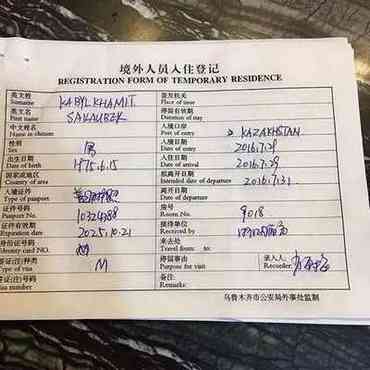 境外人员入住登记
REGISTRATION FORM OF TEMPORARY RESIDENCE
英文姓 Surname KABYLKHAMIT 签发机关 Place of issue
英文名 First name SAKAUBEK 停留有效期 Duration of stay
中文姓名 Name in chinese 入境口岸 Port of entry KAZAKHSTAN
性别 Sex 男 入境日期 Date of entry 2016.7.29
出生日期 Date of birth 1975.6.15 入住日期 Date of arrival 2016.7.29
国家或地区 Country of area 拟离开日期 Intended date of departure 2016.7.31
入境证件 Type of passport 离开日期 Date of departure
证件号码 Passport No. 10324988 房号 Room No. 9018
证件有效期 Expiration date 2025.10.21 接待单位 Received by
身份证号码 Identity card NO. 来去处 Travel from: to:
签证(注)种类 Type of visa M 停留事由 Purpose for visit 录入人: Recorder:
签证(注)号码 Visa number 备注: Remarks:
乌鲁木齐市公安局外事处监制